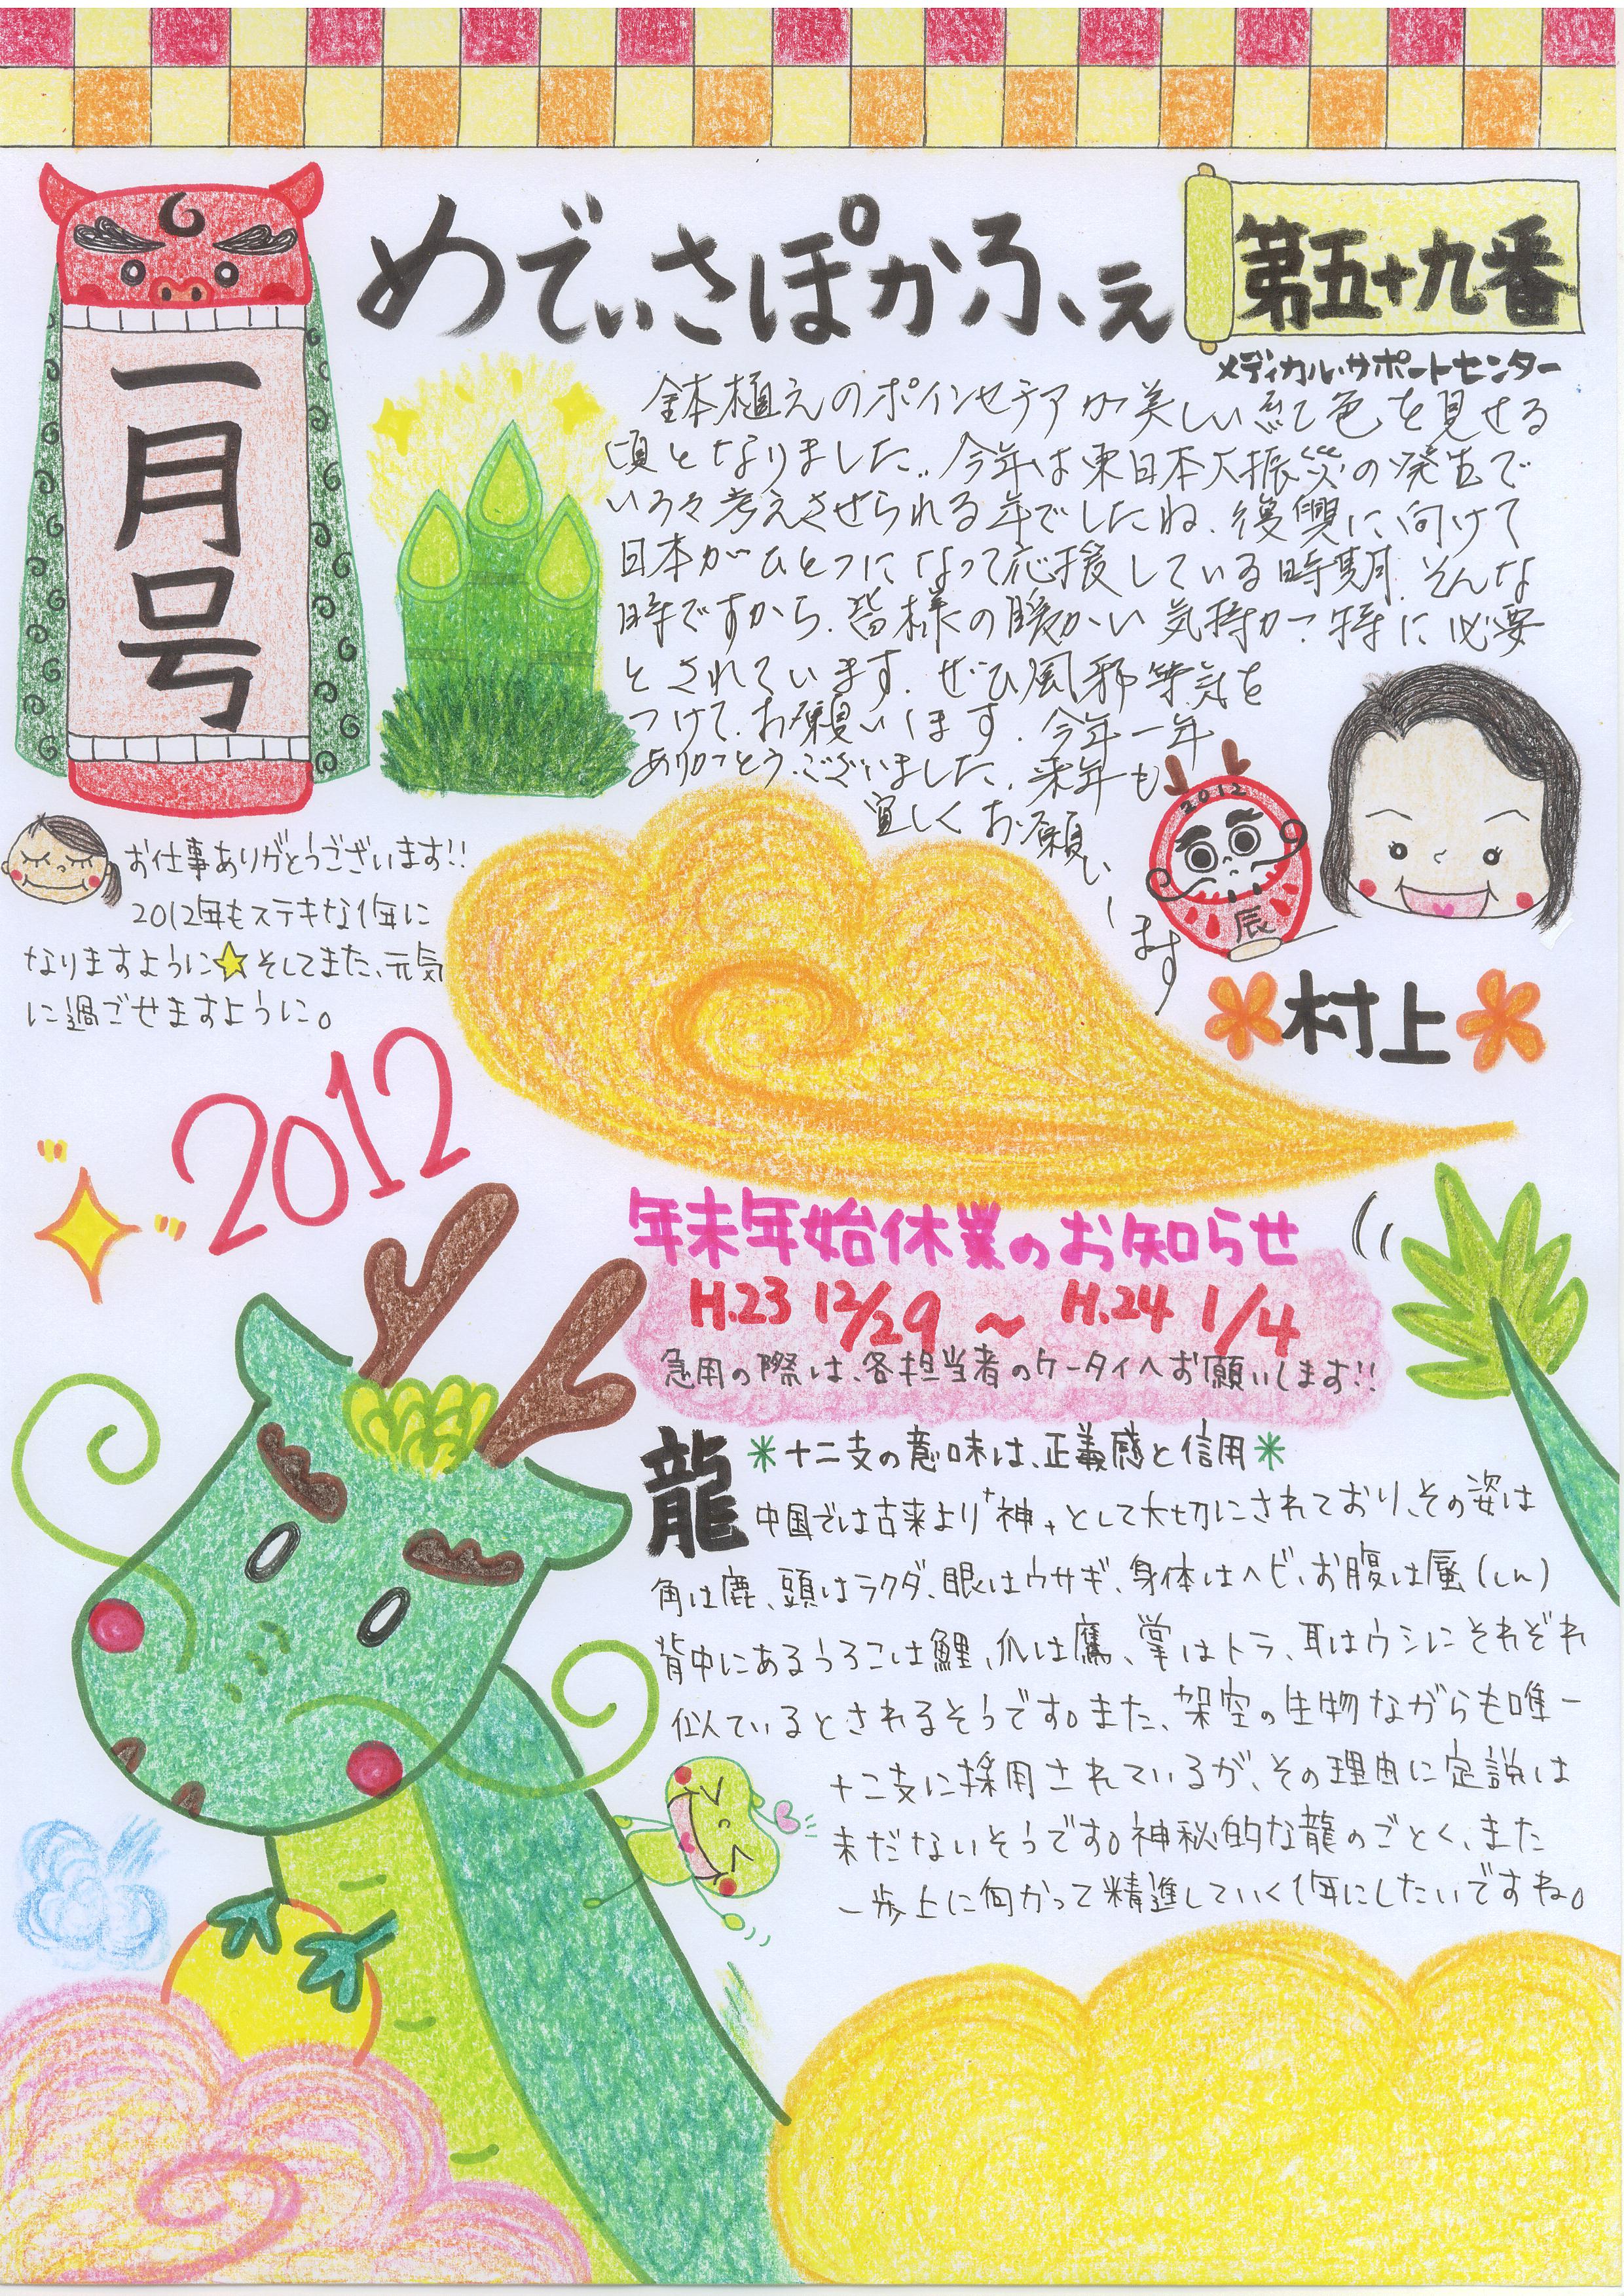 一月号
めでぃさぽかふぇ
第五十九番
メディカルサポートセンター
鉢植えのポインセチアが美しい紅色を見せる
頃となりました。今年は東日本大振災の発生で
いろいろ考えさせられる年でしたね、復興に向けて
日本がひとつになって応援している時期、そんな
時ですから、皆様の暖かい気持が特に必要
とされています。ぜひ風邪等気を
つけて、お願いします。今年一年
ありがとうございました、来年も
宜しくお願い
します
2012
辰
村上
お仕事ありがとうございます!!
2012年もステキな1年に
なりますように☆そしてまた、元気
に過ごせますように。
2012
年末年始休業のお知らせ
H.23 12/29 ~ H.24 1/4
急用の際は、各担当者のケータイへお願いします!!
龍 *十二支の意味は、正義感と信用*
中国では古来より"神"として大切にされており、その姿は
角は鹿、頭はラクダ、眼はウサギ、身体はヘビ、お腹は蜃(しん)
背中にあるうろこは鯉、爪は鷹、掌はトラ、耳はウシにそれぞれ
似ているとされるそうです。また、架空の生物ながらも唯一
十二支に採用されているが、その理由に定説は
未だないそうです。神秘的な龍のごとく、また
一歩上に向かって精進していく1年にしたいですね。